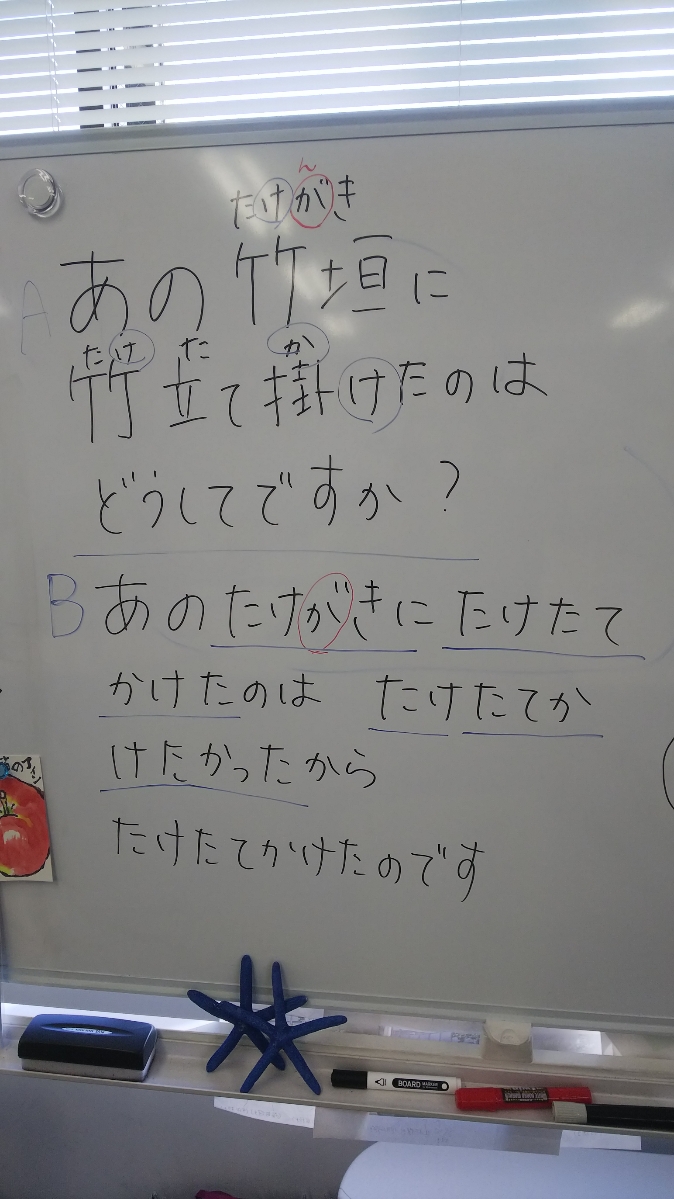 ん
たけがき
A あの竹垣に
たけ た か
竹立て掛けたのは
どうしてですか？
B あのたけがきにたけたて
かけたのは たけたてか
けたかったから
たけたてかけたのです
BOARD MARKER